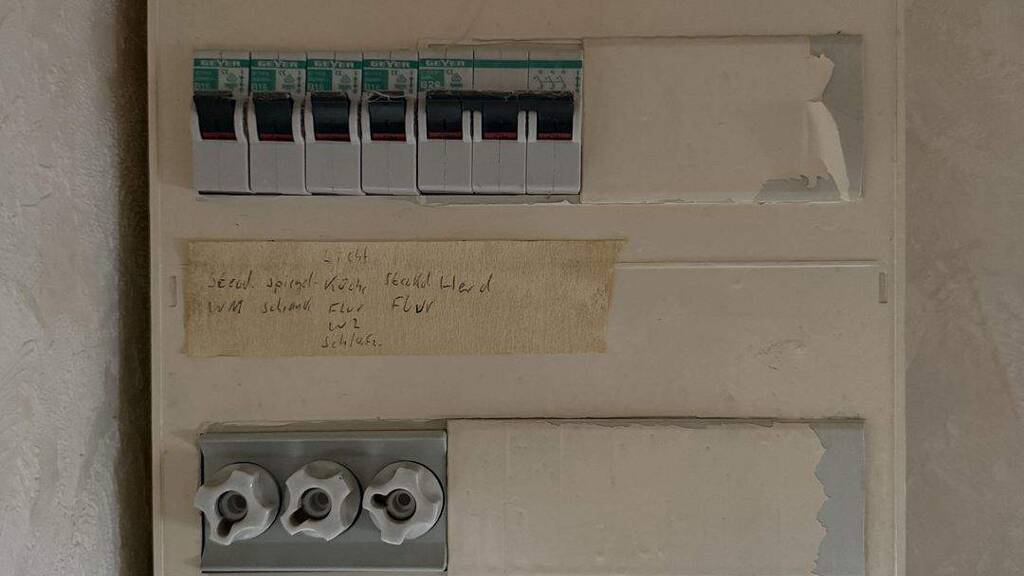 GEYER GEYER GEYER GEYER GEYER
Licht
Steckd. Spiegel- Küche Steckd Herd
WM schrank Flur Flur
WZ
Schlafz.